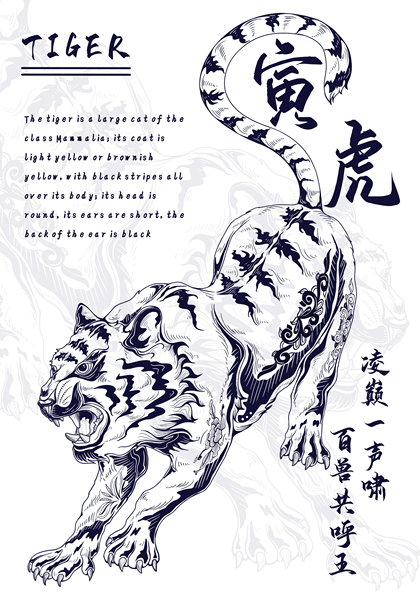 TIGER
The tiger is a large cat of the
class Mammalia; its coat is
light yellow or brownish
yellow, with black stripes all
over its body; its head is
round, its ears are short, the
back of the ear is black
寅
虎
凌巅一声啸
百兽共呼王